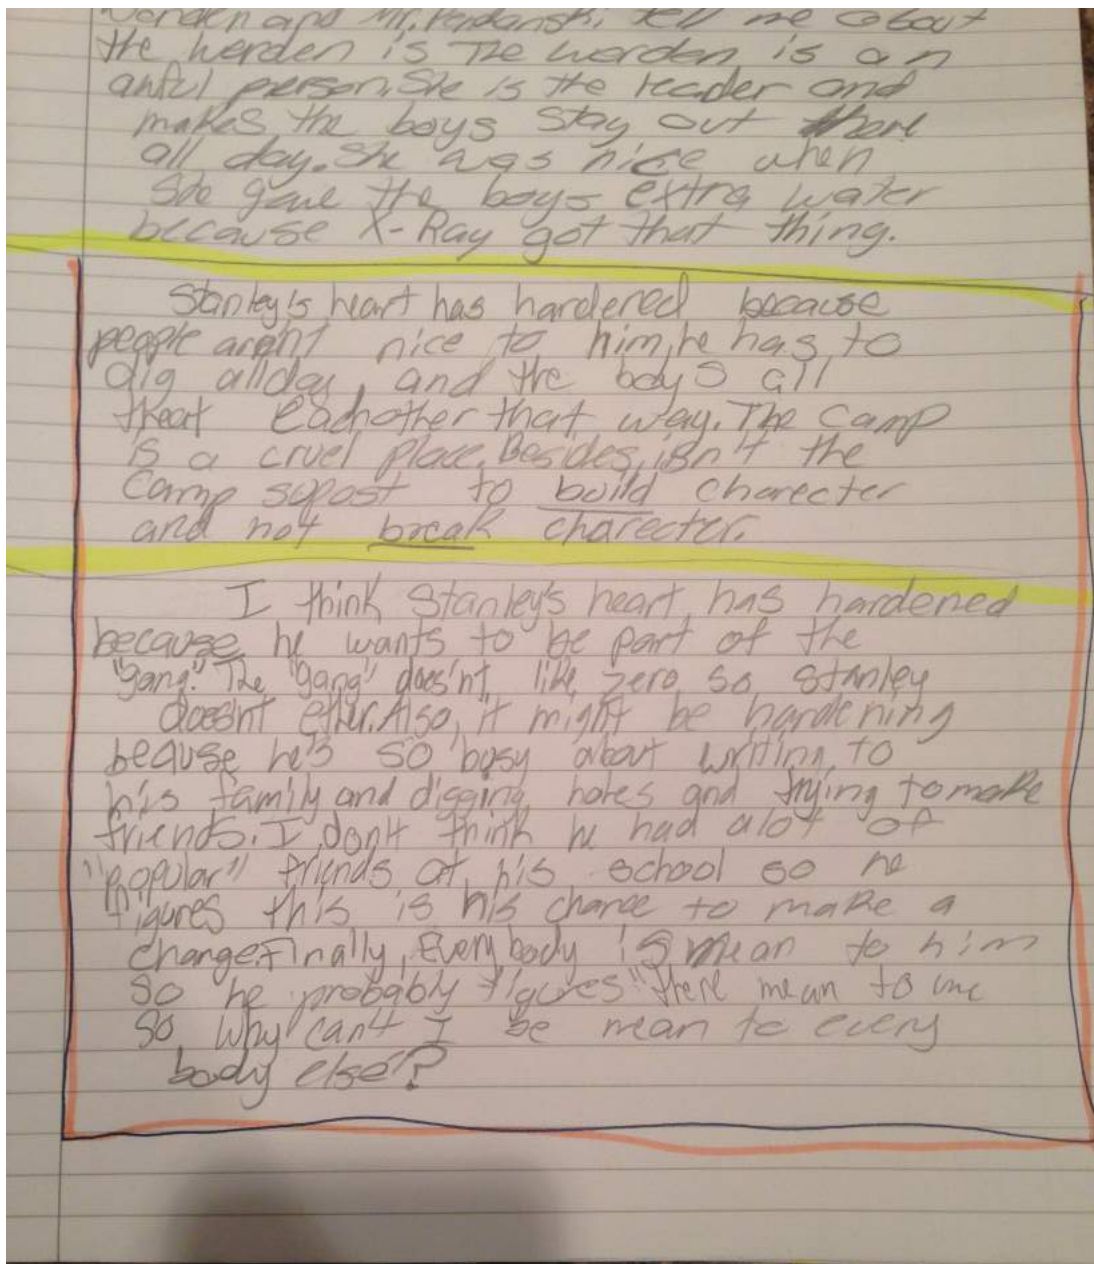 Warden and Mr. Pendanski tell me about
the werden is The worden is an
awful person. She is the leader and
makes the boys stay out there
all day. She was nice when
She gave the boys extra water
because X-Ray got that thing.
Stanley's heart has hardened because
people aren't nice to him, he has to
dig allday, and the boys all
treat eachother that way. The camp
is a cruel place. Besides, isn't the
Camp sopost to build charecter
and not break charecter.
I think Stanley's heart has hardened
because he wants to be part of the
"gang." The "gang" does'nt like zero so stanley
doesnt ether. Also, it might be hardening
beause he's so busy about writing to
his family and digging holes and trying to make
friends. I don't think he had alot of
"popular" friends at his school so he
figures this is his chance to make a
change. Finally, Everybody is mean to him
so he probably figures "there mean to me
so why can't I be mean to every
body else"?